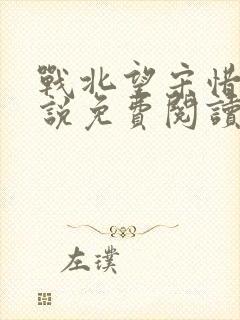 戰北望宋惜
說免費閱讀
左璞